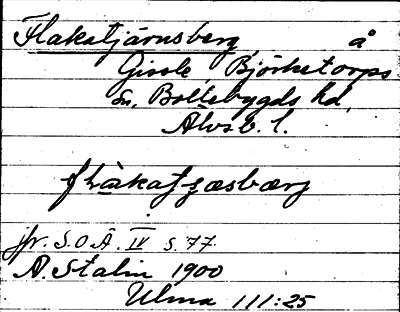 Flakatjärnsberg, å
Gissle, Björketorps
sn, Bollebygds hd,
Älvsb. l.
flàkatʃæsbærg
jfr. S.O.Ä. IV s. 77
A. Stalin 1900
Ulma 111:25